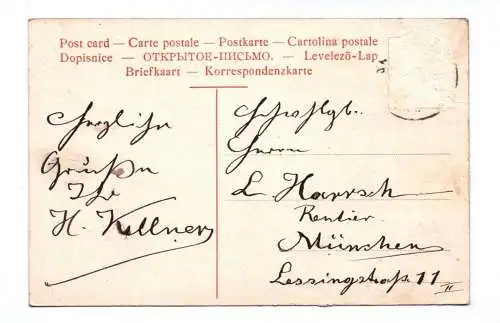 Post card — Carte postale — Postkarte — Cartolina postale
Dopisnice — ОТКРЫТОЕ-ПИСЬМО. — Levelező-Lap
Briefkaart — Korrespondenzkarte
Herzliche
Grüße
Ihr
H. Kellner
Hochwohlgb.
Herrn
L. Harrsch
Rentier
München
Lessingstraße 11 II